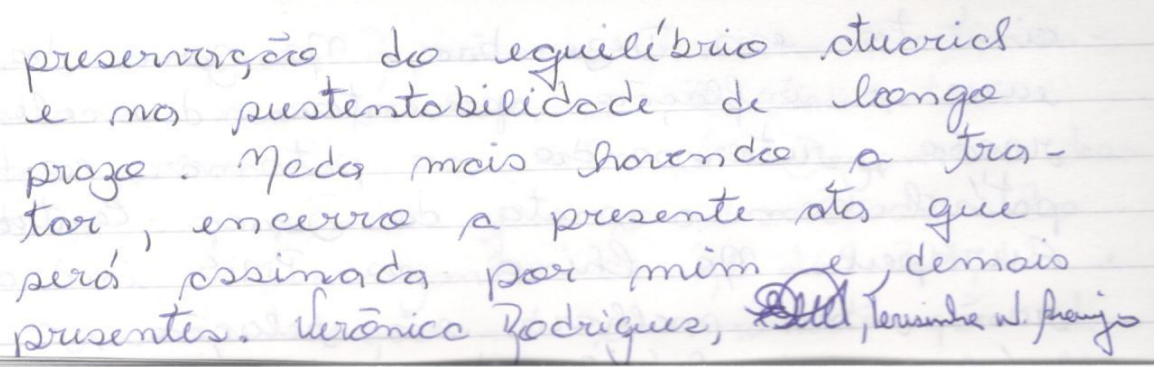 preservação do equilíbrio atuarial
e na sustentabilidade de longo
prazo. Nada mais havendo a tra-
tar, encerro a presente ata que
será assinada por mim e demais
presentes. Verônica Rodrigues, Terezinha N. Araújo